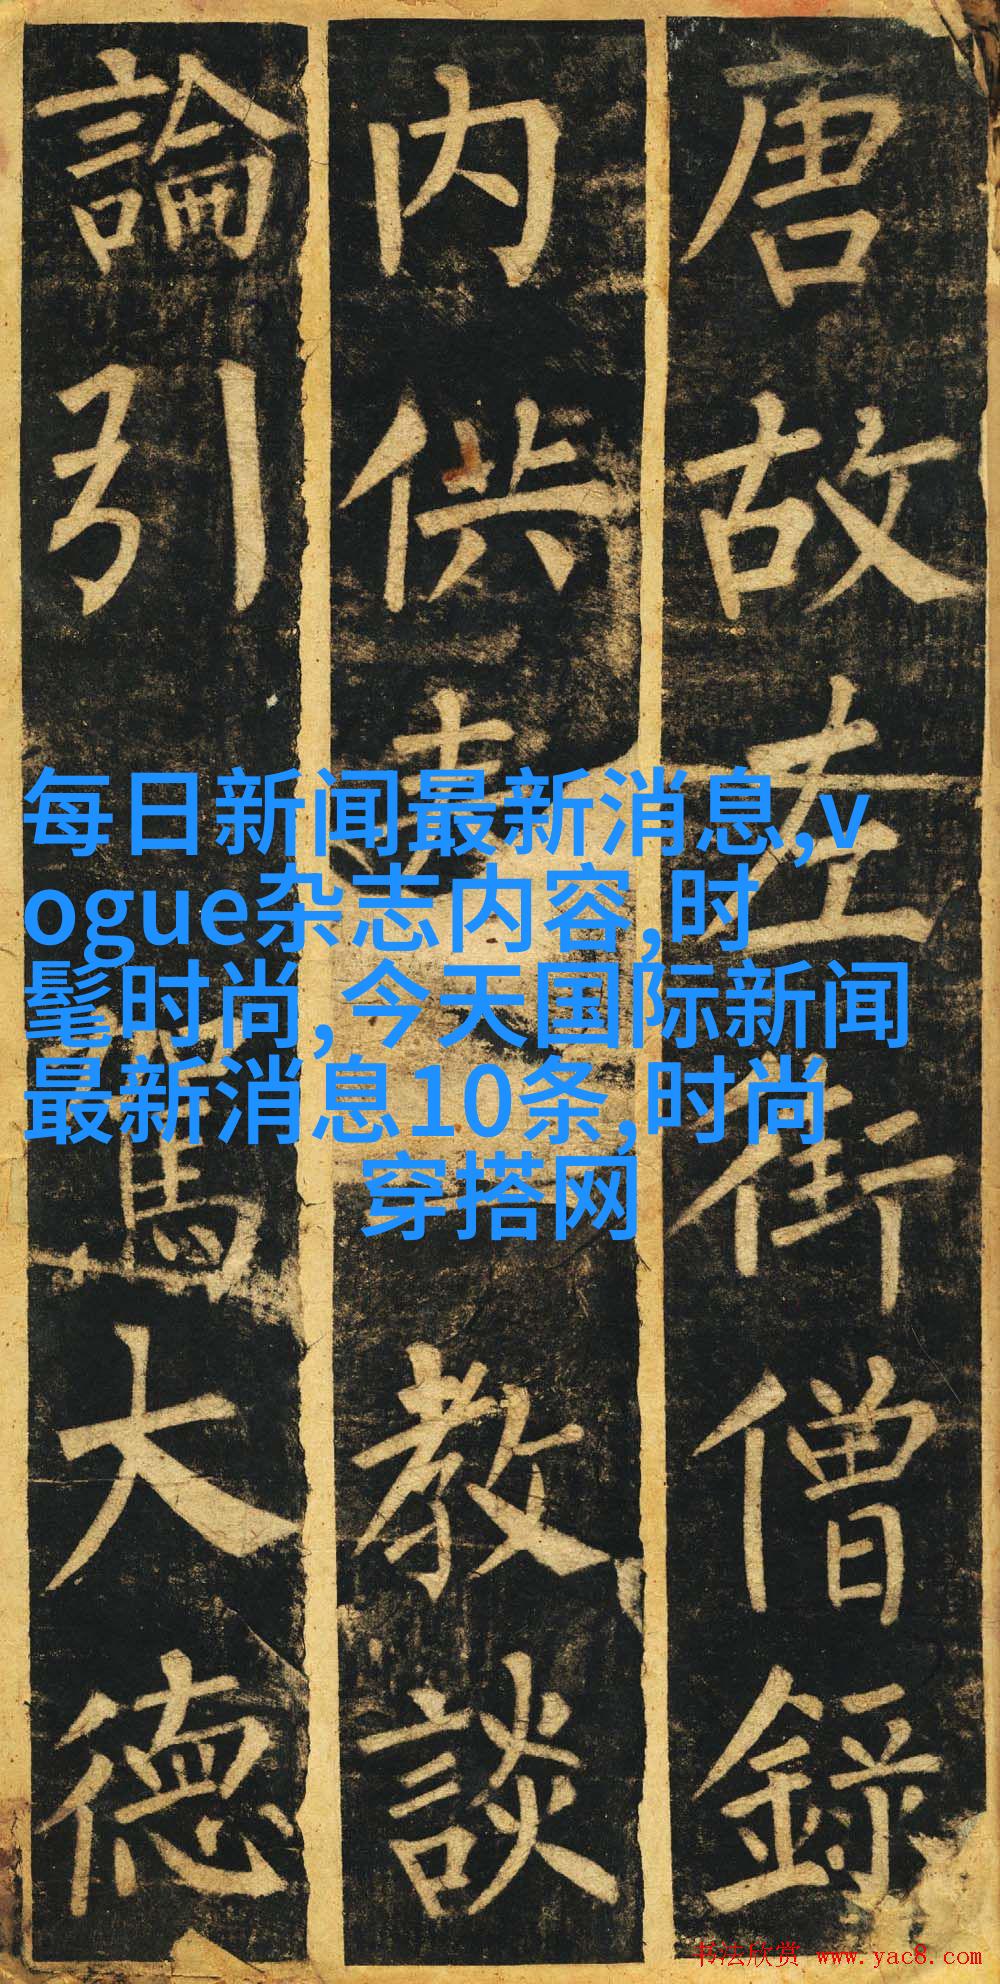 唐故左街僧録
内供奉教談
論引駕大德
每日新闻最新消息,v
ogue杂志内容,时
髦时尚,今天国际新闻
最新消息10条,时尚
穿搭网
书法欣赏 www.yac8.com